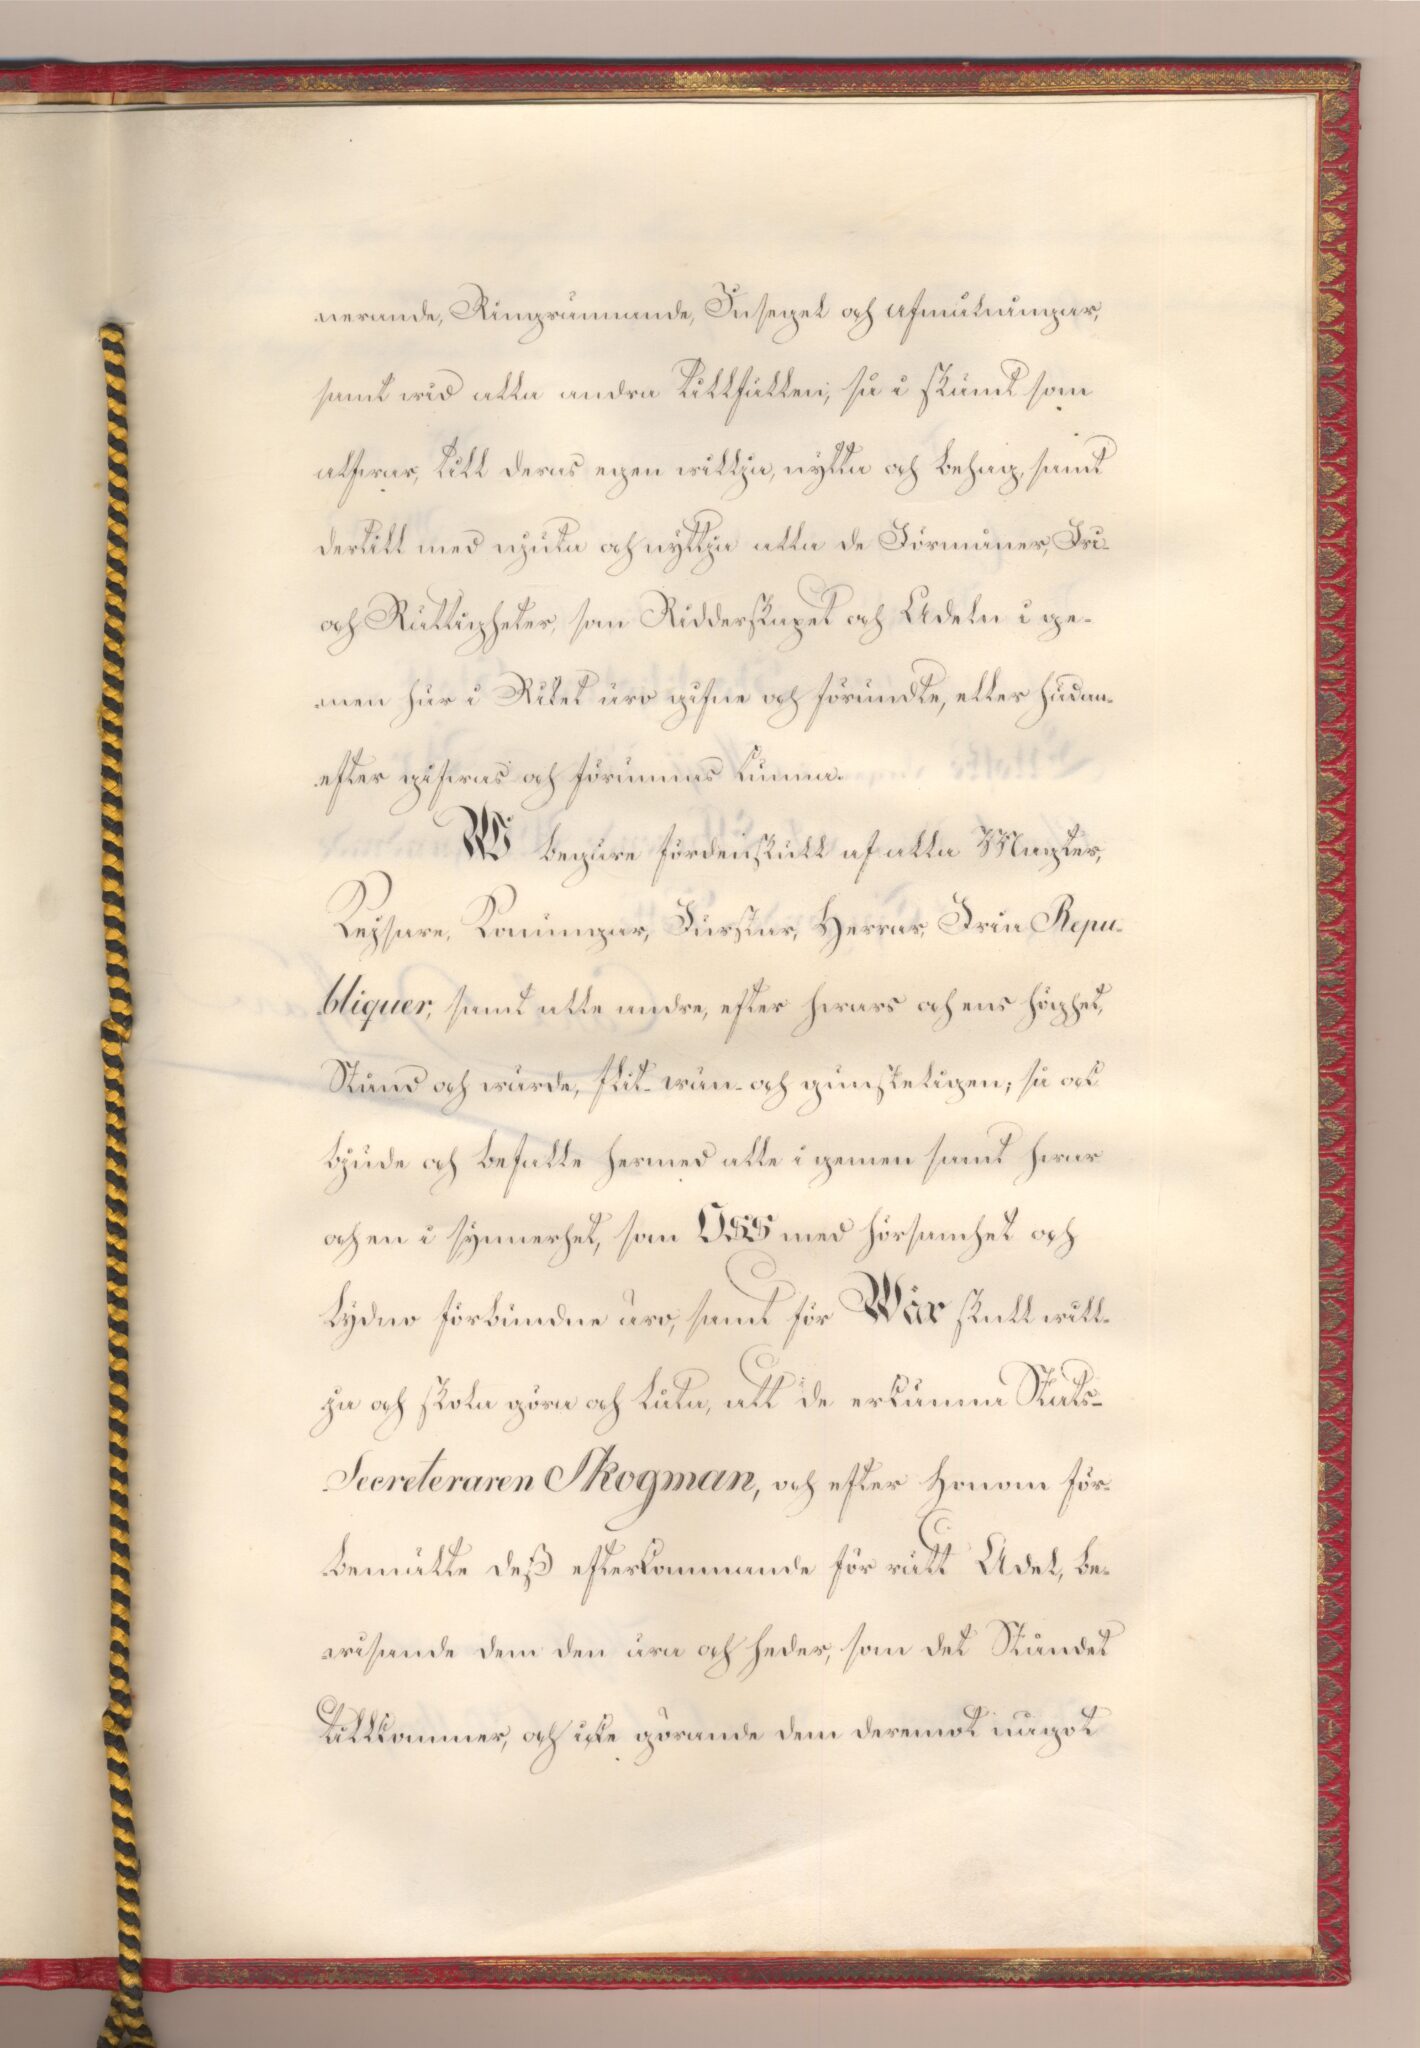 nerande, Ringrännande, Insegel och afmålningar,
samt wid alla andra tillfällen, så i skämt som
alfwar, till deras egen willja, nytta och behag, samt
dertill med njuta och nyttja alla de Förmåner, Fri-
och Rättigheter, som Ridderskapet och Adeln i ge-
men här i Riket äro gifne och förundte, eller hädan-
efter gifwas och förunnas kunna.
Wi begäre fördenskull af alla Magter,
Kejsare, Konungar, Furstar, Herrar, Fria Repu-
bliquer, samt alle andre, efter hwars och ens höghet,
Stånd och wärde, flit- wän- och gunsteligen; så ock
bjude och befalle hermed alle i gemen samt hwar
och en i synnerhet, som Oss med hörsamhet och
lydno förbundne äro, samt för Wår skull will-
ja och skola göra och låta, att de erkänna Stats-
Secreteraren Skogman, och efter Honom för-
bemälte deß efterkommande för rätt Adel, be-
wisande dem den ära och heder, som det Ståndet
tillkommer, och icke görande dem deremot något